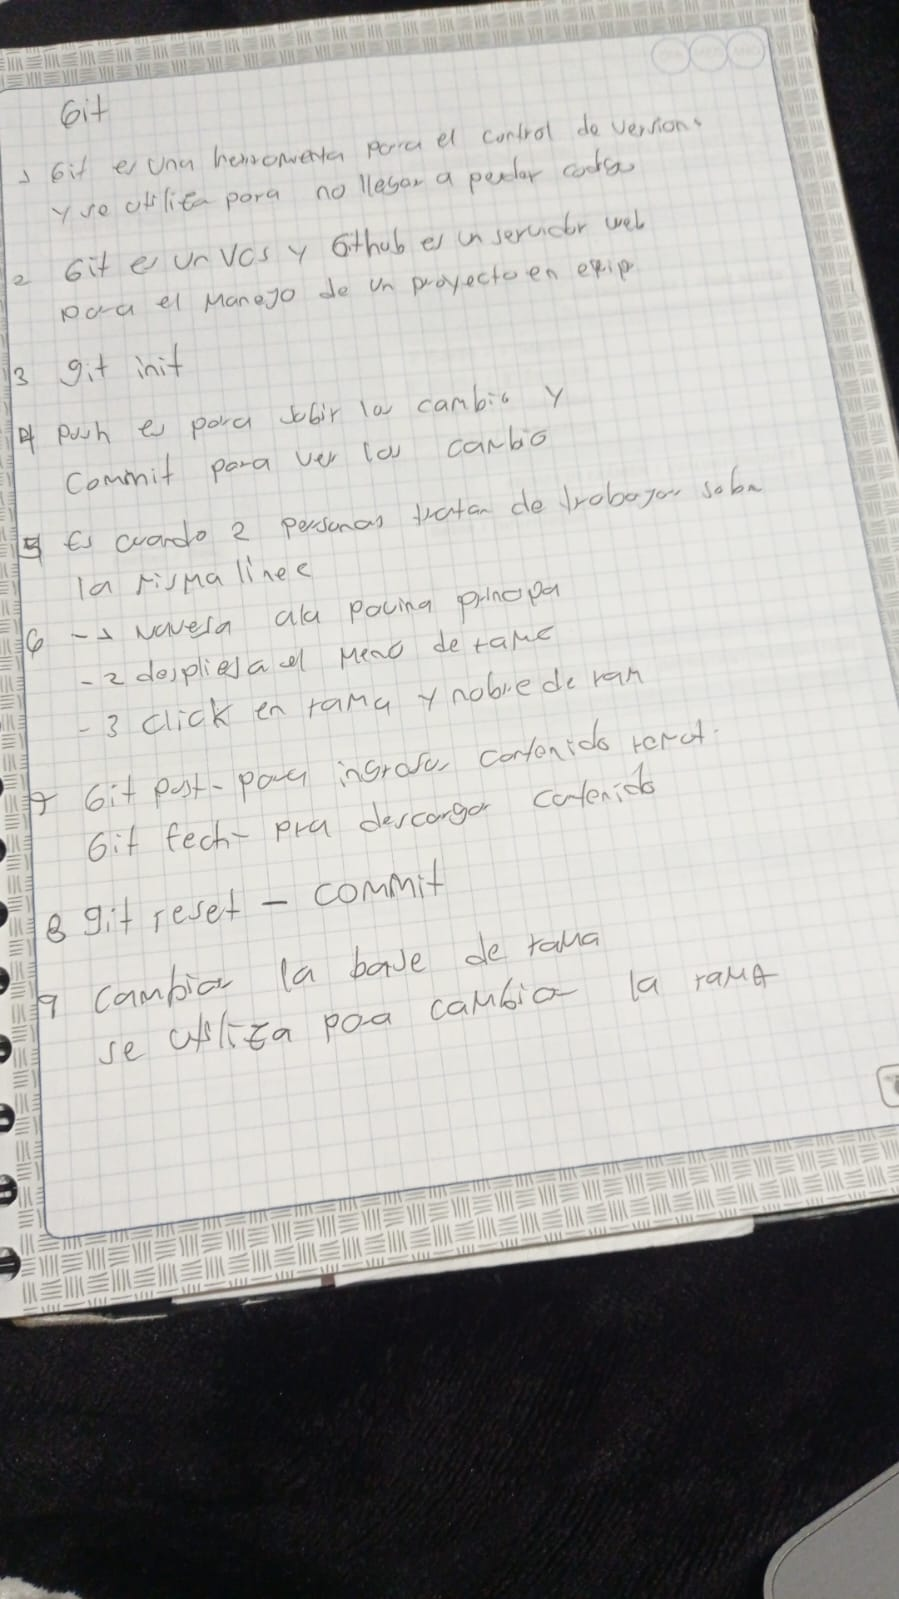 Git
1 Git es una herramienta para el control de version.
y se utiliza para no llegar a perder codigo
2 Git es un VCS y Github es un servidor web
para el Manejo de un proyecto en equip
3 git init
4 push es para subir los cambio y
Commit para ver los cambio
5 Es cuando 2 personas tratan de trabajar sobre
la misma linee
6 -1 Navega ala pagina principa
-2 despliega el Menú de rama
-3 Click en rama y nobre de ram
7 Git pust- para ingresar contenido remot.
Git fech- pra descargar contenido
8 git reset - commit
9 Cambiar la base de rama
se utiliza poa cambiar la rama